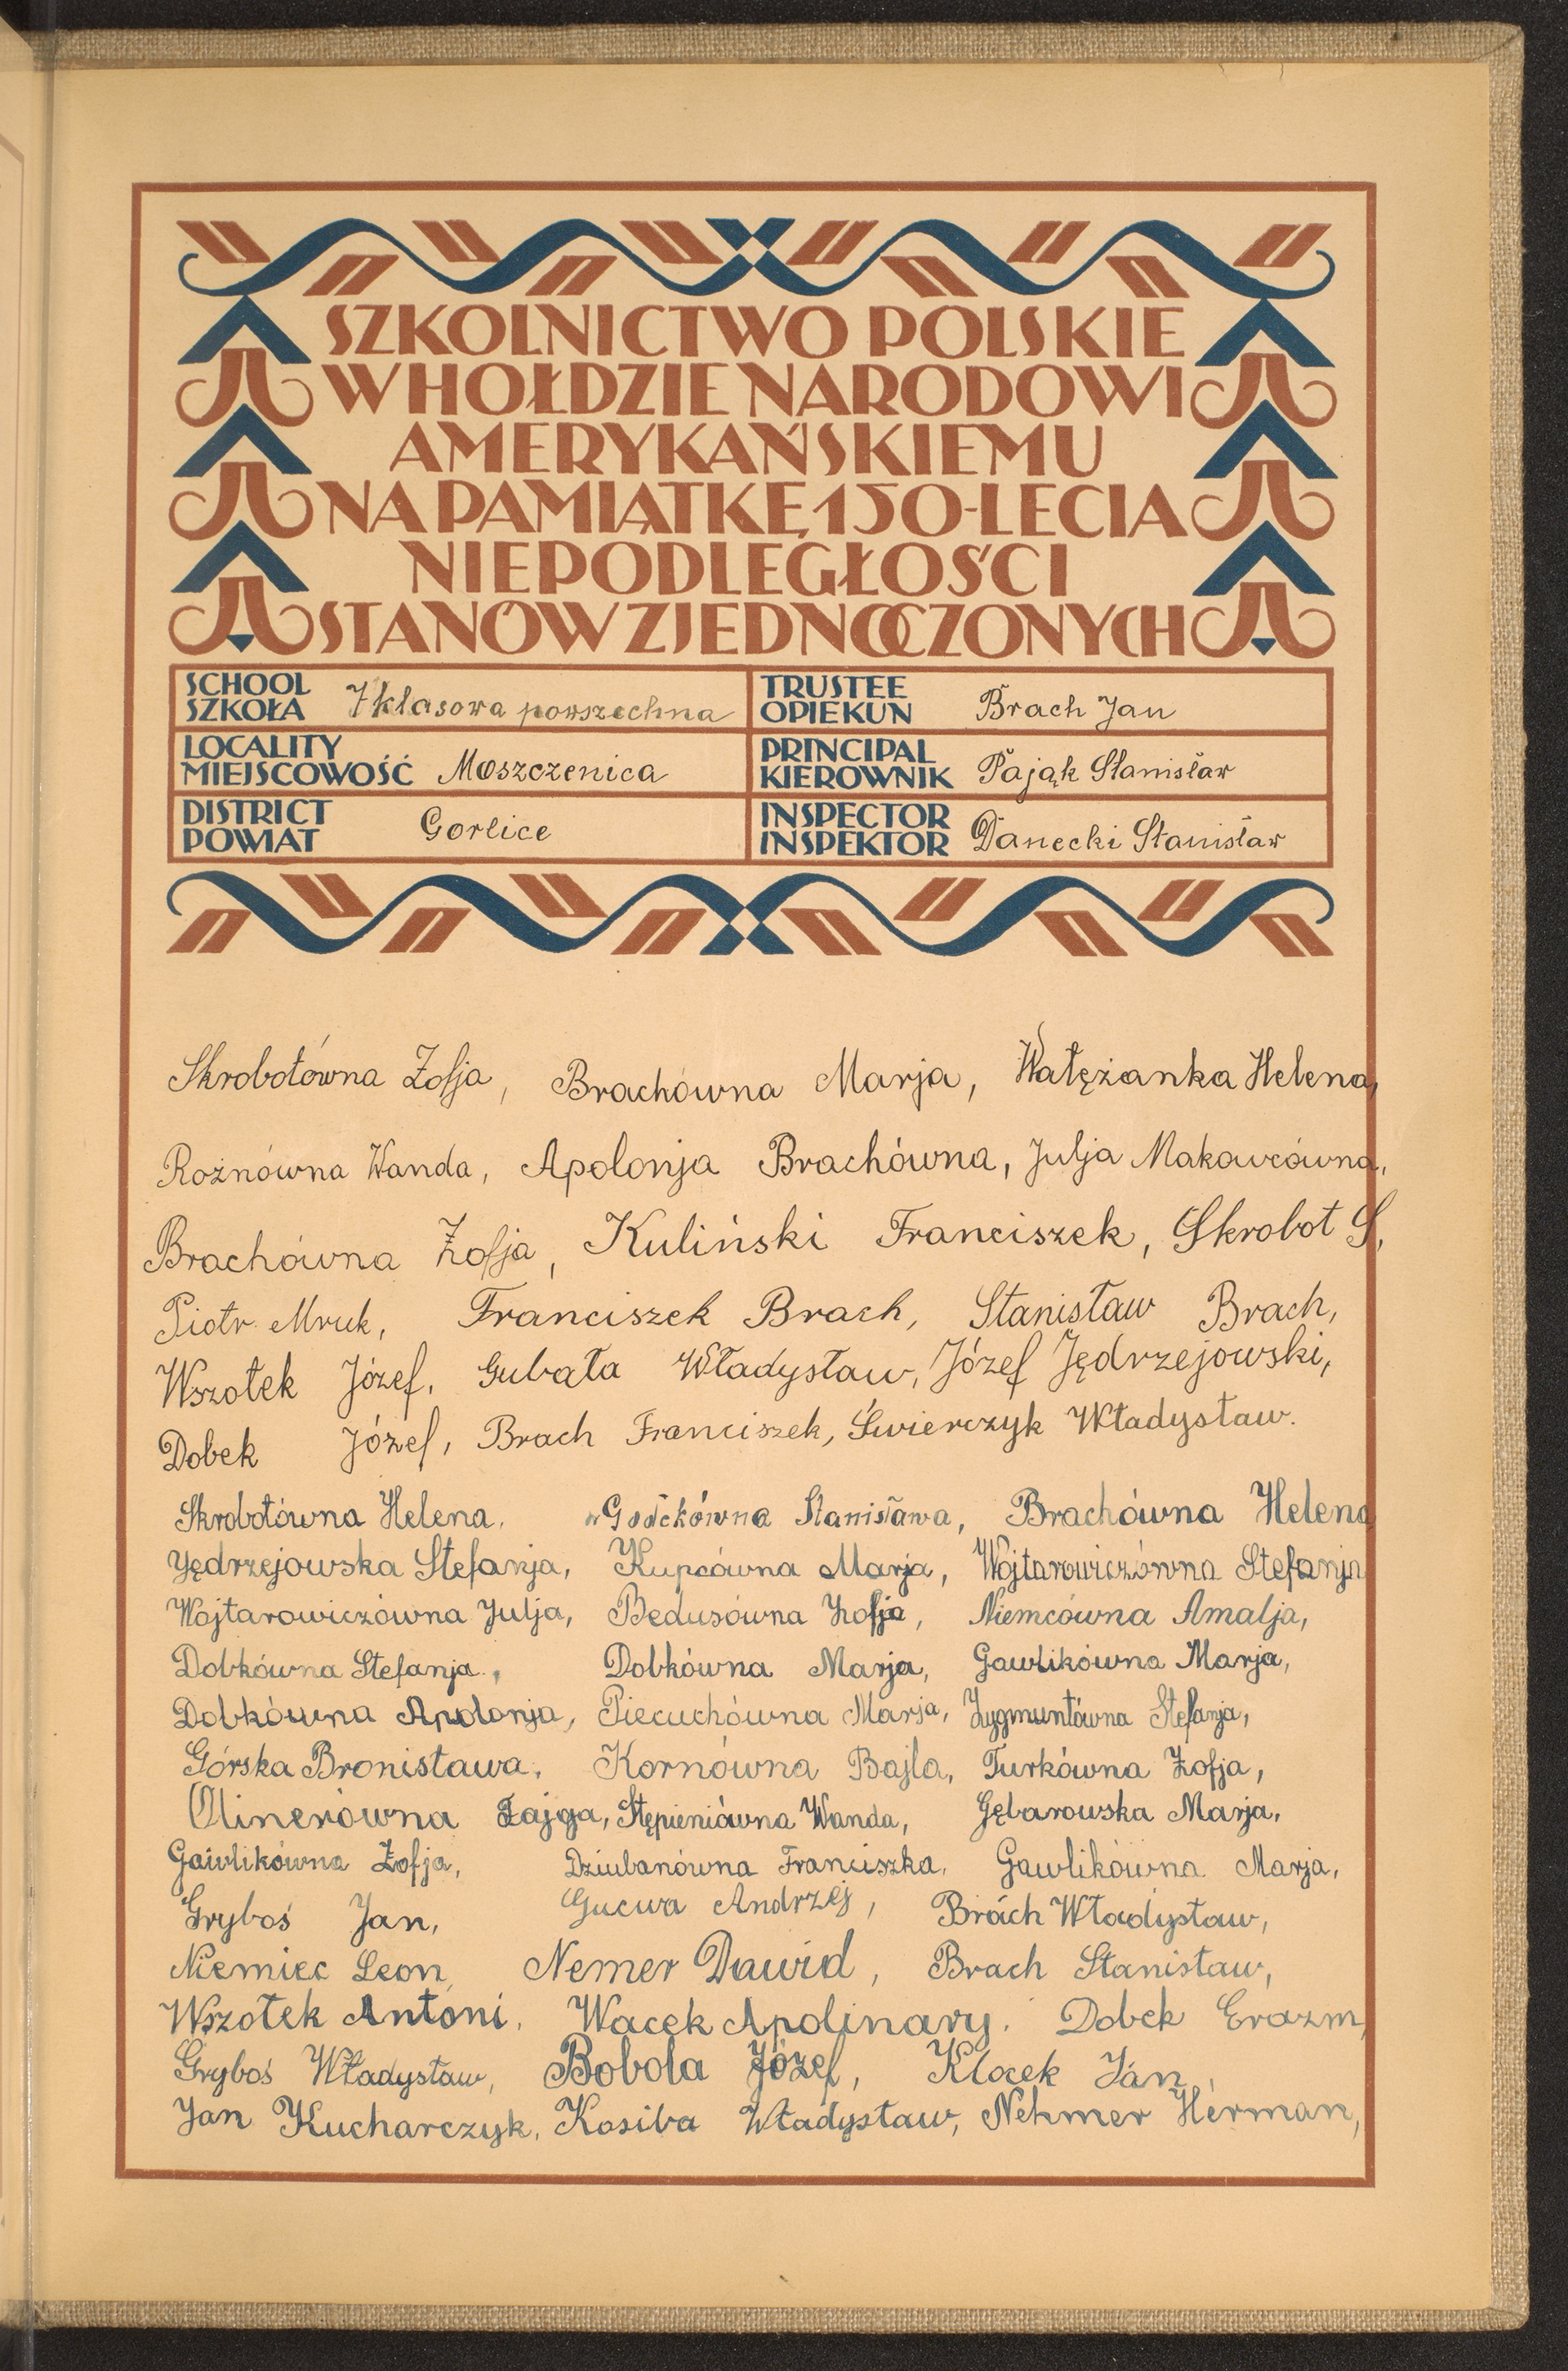 SZKOLNICTWO POLSKIE
W HOŁDZIE NARODOWI
AMERYKAŃSKIEMU
NA PAMIĄTKĘ 150-LECIA
NIEPODLEGŁOŚCI
STANÓW ZJEDNOCZONYCH
SCHOOL
SZKOŁA 7 klasowa powszechna
TRUSTEE
OPIEKUN Brach Jan
LOCALITY
MIEJSCOWOŚĆ Moszczenica
PRINCIPAL
KIEROWNIK Pająk Stanisław
DISTRICT
POWIAT Gorlice
INSPECTOR
INSPEKTOR Danecki Stanisław
Skrobotówna Zofja, Brachówna Marja, Wałężanka Helena,
Rożnówna Wanda, Apolonja Brachówna, Julja Makowcówna,
Brachówna Zofja, Kuliński Franciszek, Skrobot S,
Piotr Mruk, Franciszek Brach, Stanisław Brach,
Wszołek Józef, Gubała Władysław, Józef Jędrzejowski,
Dobek Józef, Brach Franciszek, Świerczyk Władysław.
Skrobotówna Helena, Stanisława, Brachówna Helena
Jędrzejowska Stefanja, Kupcówna Marja, Wojtarowiczówna Stefanja
Wojtarowiczówna Julja, Bedusówna Zofja, Niemcówna Amalja,
Dobkówna Stefanja, Dobkówna Marja, Gawlikówna Marja,
Dobkówna Apolonja, Piecuchówna Marja, Zygmuntówna Stefanja,
Górska Bronisława, Kornówna Bajla, Turkówna Zofja,
Olinerówna Fajga, Stępieniówna Wanda, Gębarowska Marja,
Gawlikówna Zofja, Dziubanówna Franciszka, Gawlikówna Marja,
Gryboś Jan, Gucwa Andrzej, Brach Władysław,
Niemiec Leon, Nemer Dawid, Brach Stanisław,
Wszołek Antoni, Wacek Apolinary, Dobek Erazm,
Gryboś Władysław, Bobola Józef, Klocek Jan,
Jan Kucharczyk, Kosiba Władysław, Nehmer Herman,